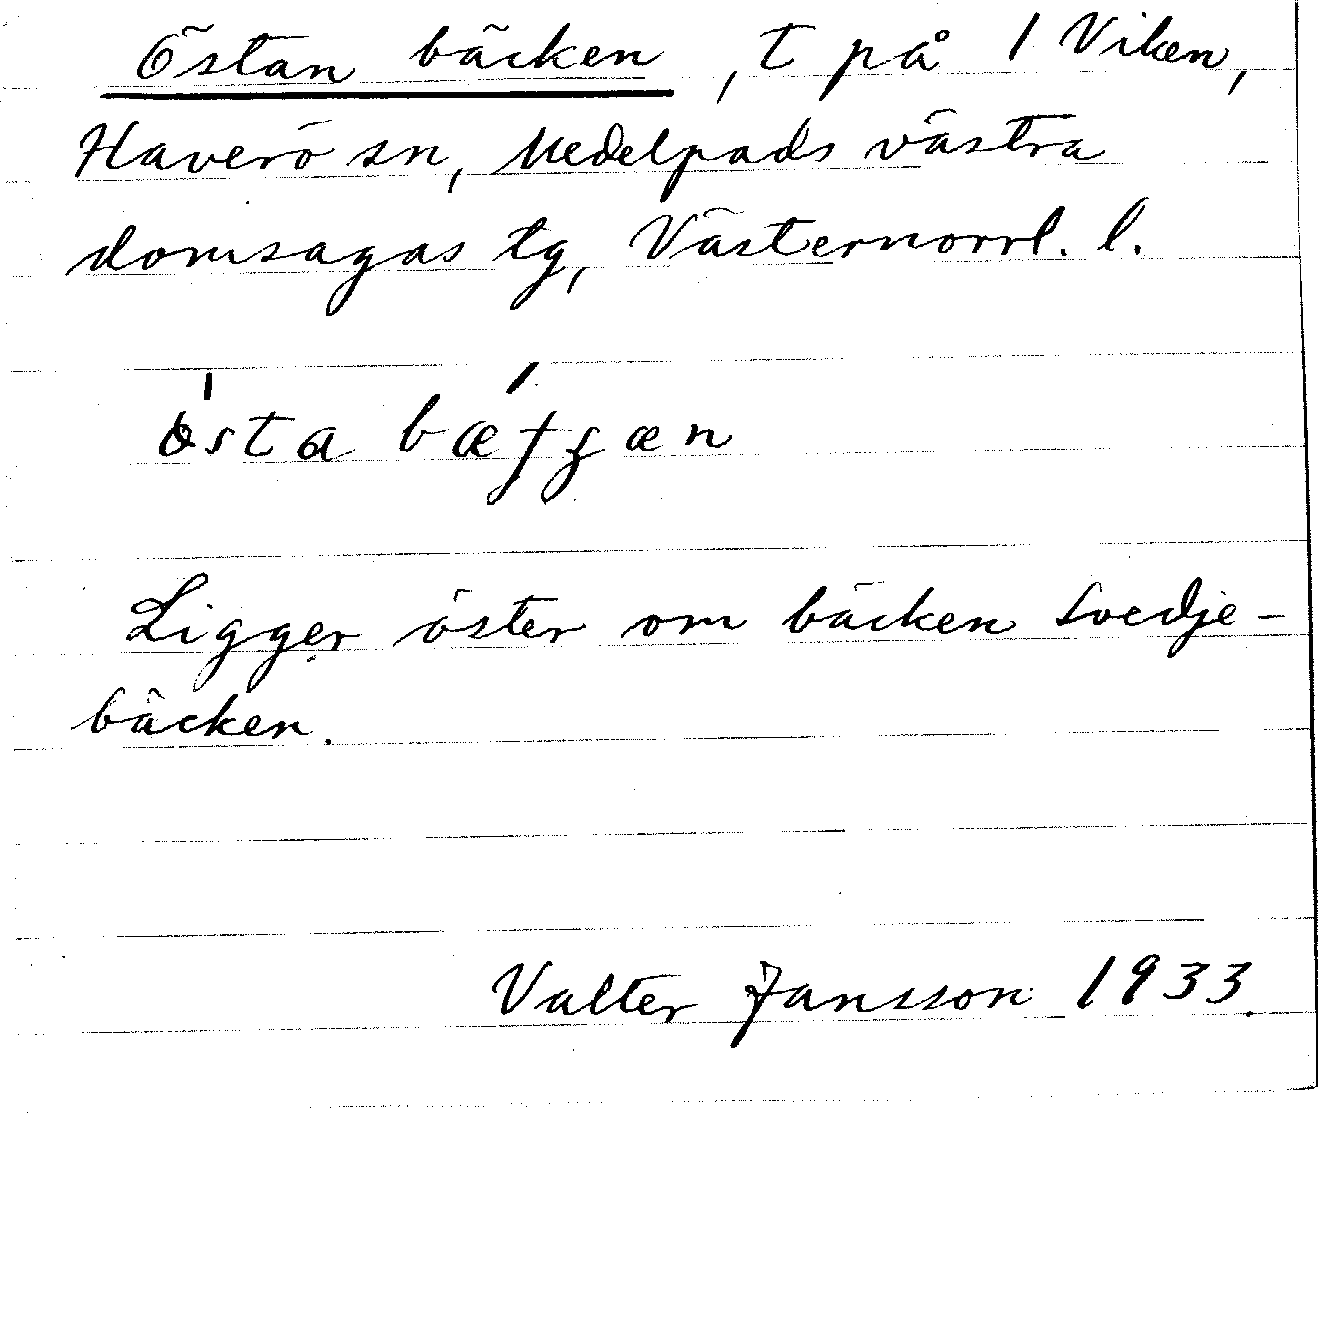 Östan bäcken, t på 1 Viken,
Haverö sn, Medelpads västra
domsagas tg, Västernorrl. l.
Ligger öster om bäcken Svedje-
bäcken.
Valter Jansson 1933.